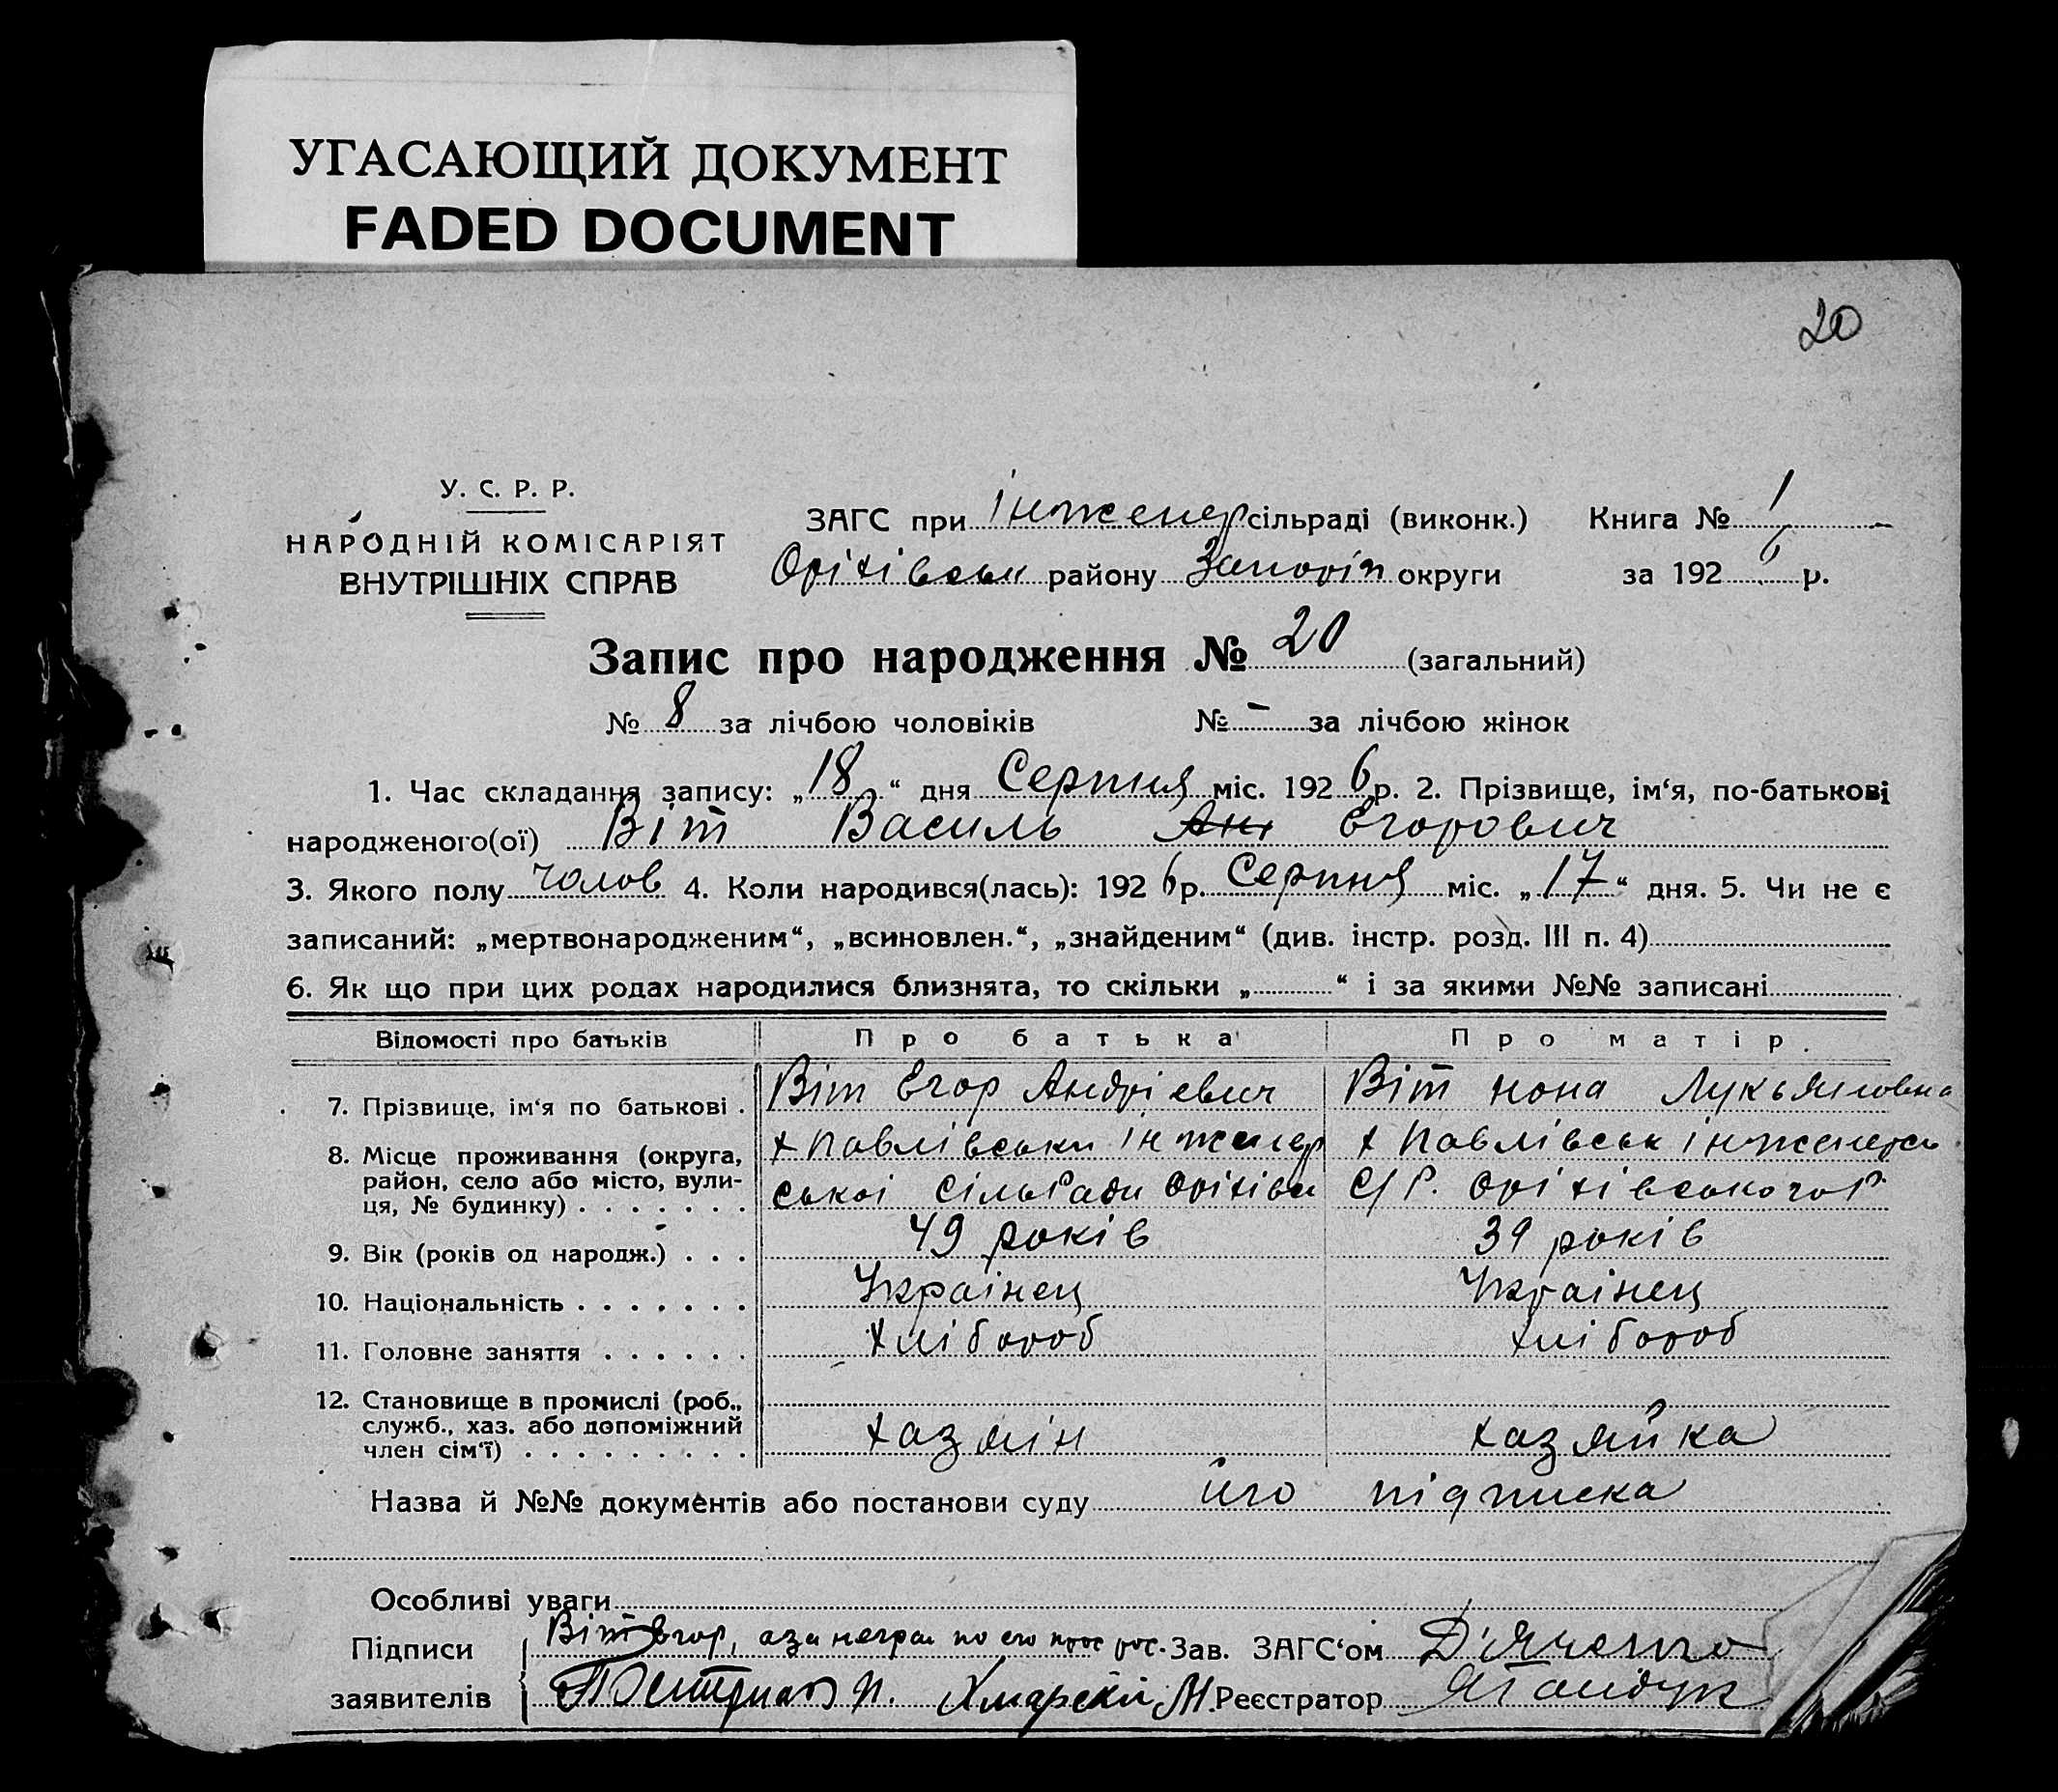 УГАСАЮЩИЙ ДОКУМЕНТ
FADED DOCUMENT
20
У. С. Р. Р.
НАРОДНІЙ КОМІСАРІЯТ
ВНУТРІШНІХ СПРАВ
ЗАГС при інженер сільраді (виконк.) Книга № 1
Оріхівськ району Запоріп округи за 192 6 р.
Запис про народження № 20 (загальний)
№ 8 за лічбою чоловіків № - за лічбою жінок
1. Час складання запису: „18“ дня Серпня міс. 192 6 р. 2. Прізвище, ім‘я, по-батькові
народженого(ої) Віт Василь Егорович
3. Якого полу чолов 4. Коли народився(лась): 192 6 р. Серпня міс. „17“ дня. 5. Чи не є
записаний: „мертвонародженим“, „всиновлен.“, „знайденим“ (див. інстр. розд. III п. 4)
6. Як що при цих родах народилися близнята, то скільки „ “ і за якими №№ записані
Відомості про батьків Про батька Про матір.
7. Прізвище, ім‘я по батькові . Віт Егор Андрієвич Віт нона Лукьяновна
8. Місце проживання (округа, х Павлівськи інженер х Павлівськ інженерсь
район, село або місто, вули- ської сільРади Оріхівс С/Р. Оріхівського Р
ця, № будинку) . . . . . . .
9. Вік (років од народж.) . . . 49 років 39 років
10. Національність . . . . . . . Українец Українец
11. Головне заняття . . . . . . хлібороб хлібороб
12. Становище в промислі (роб.,
служб., хаз. або допоміжний хазяін хазяйка
член сім‘ї) . . . . . . . . .
Назва й №№ документів або постанови суду його підписка
Особливі уваги
Підписи Віт Егор, а за неграм по его прос рос. Зав. ЗАГС‘ом Д'яченко
заявителів П. М. Реєстратор